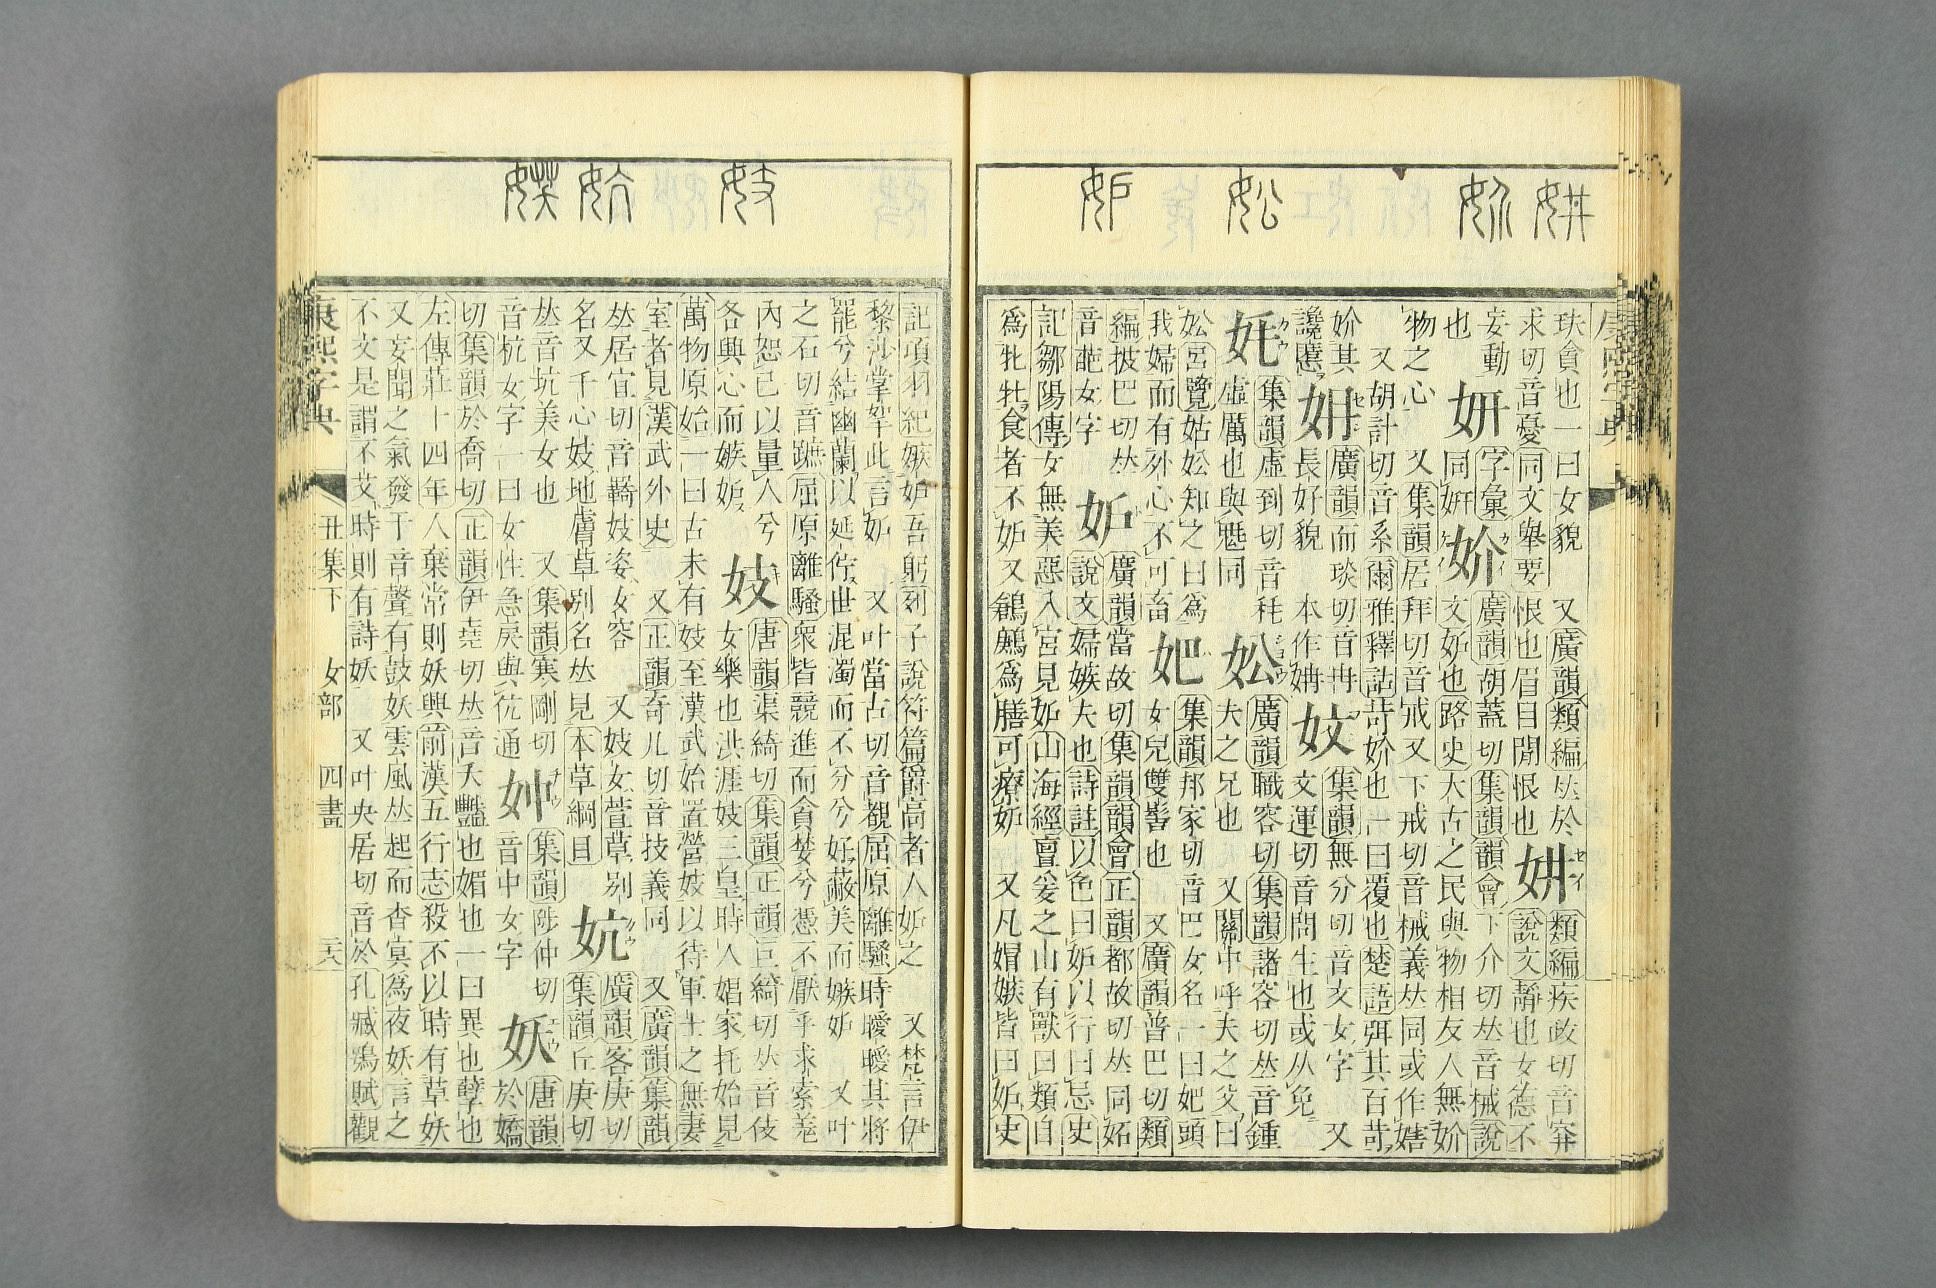 妌
妎
妐
妒
玞貪也一曰女貌　又廣韻類編𠀤於
求切音憂同文舉要恨也眉目閒恨也
妌
類編疾政切音穽
說文靜也女德不
妄動
也
妍
字彙
同姸
妎
廣韻胡蓋切集韻韻會下介切𠀤音械說
文妒也路史大古之民與物相友人無妎
物之心　又集韻居拜切音戒又下戒切音械義𠀤同或作
又胡計切音系爾雅釋詁苛妎也一曰覆也楚語弭其百苛
妎其
讒慝
廣韻而琰切首冉
長好貌　本作姌
妏
集韻無分切音文女字　又
文運切音問生也或从免
集韻虛到切音秏
虛厲也與魋同
妐
廣韻職容切集韻諸容切𠀤音鍾
夫之兄也　又關中呼夫之父曰
妐呂覽姑妐知之曰爲
我婦而有外心不可畜
妑
集韻邦家切音巴女名一曰妑頭
女兒雙髻也　又廣韻普巴切類
編披巴切𠀤
音葩女字
妒
廣韻當故切集韻韻會正韻都故切𠀤同妬
說文婦嫉夫也詩註以色曰妒以行曰忌史
記鄒陽傳女無美惡入宮見妒山海經亶爰之山有獸曰類自
爲牝牡食者不妒又鶬鶊爲膳可療妒　又凡媢嫉皆曰妒史
妓
妔
記項羽紀嫉妒吾躬列子說符篇爵高者人妒之　又楚言伊
黎沙掌拏此言妒　又叶當古切音覩屈原離騷時曖曖其將
罷兮結幽蘭以延佇世混濁而不分兮好蔽美而嫉妒　又叶
之石切音蹠屈原離騷衆皆競進而貪婪兮憑不厭乎求索羌
內恕己以量人兮
各興心而嫉妒
妓
唐韻渠綺切集韻正韻巨綺切𠀤音伎
女樂也洪涯妓三皇時人娼家托始見
萬物原始一曰古未有妓至漢武始置營妓以待軍士之無妻
室者見漢武外史　又正韻奇几切音技義同　又廣韻集韻
𠀤居宜切音羇妓姿女容　又妓女萱草別
名又千心妓地膚草別名𠀤見本草綱目
妔
廣韻客庚切
集韻丘庚切
𠀤音坑美女也　又集韻寒剛切
音杭女字一曰女性急戾與忼通
妕
集韻陟仲切
音中女字
妖
唐韻
於嬌
切集韻於喬切正韻伊堯切𠀤音夭豔也媚也一曰異也孽也
左傳莊十四年人棄常則妖興前漢五行志殺不以時有草妖
又妄聞之氣發于音聲有鼓妖雲風𠀤起而杳冥爲夜妖言之
不文是謂不艾時則有詩妖　又叶央居切音於孔臧鴞賦觀
康熙字典　丑集下　女部　四畫